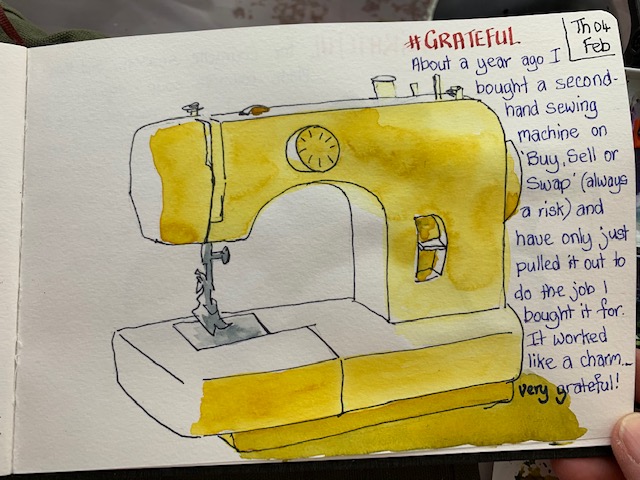 #GRATEFUL
Th 04
Feb
About a year ago I
bought a second-
hand sewing
machine on
'Buy, Sell or
Swap' (always
a risk) and
have only just
pulled it out to
do the job I
bought it for.
It worked
like a charm...
very grateful!